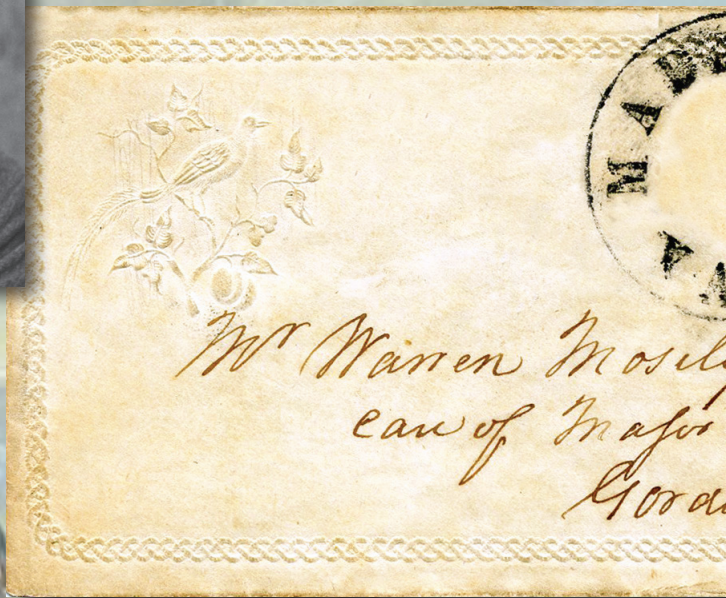 MAD
VA
Mr Warren Mosel
care of Major
Gord